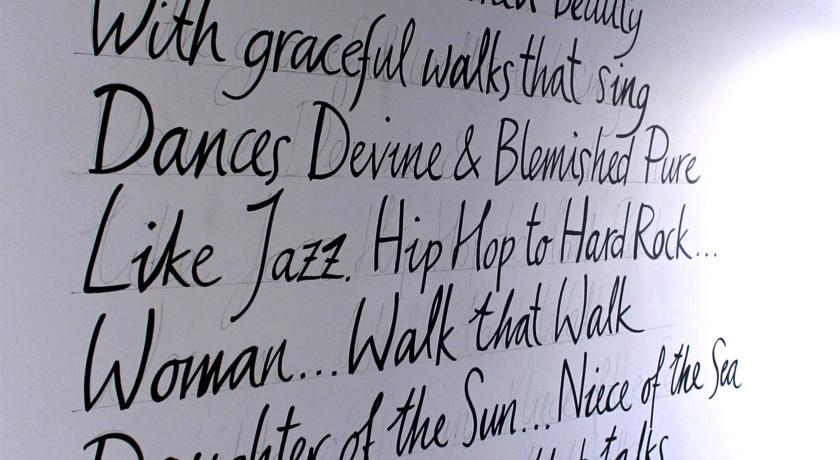 beauty
With graceful walks that sing
Dances Devine & Blemished Pure
Like Jazz. Hip Hop to Hard Rock...
Woman... Walk that Walk
Daughter of the Sun... Niece of the Sea
talks